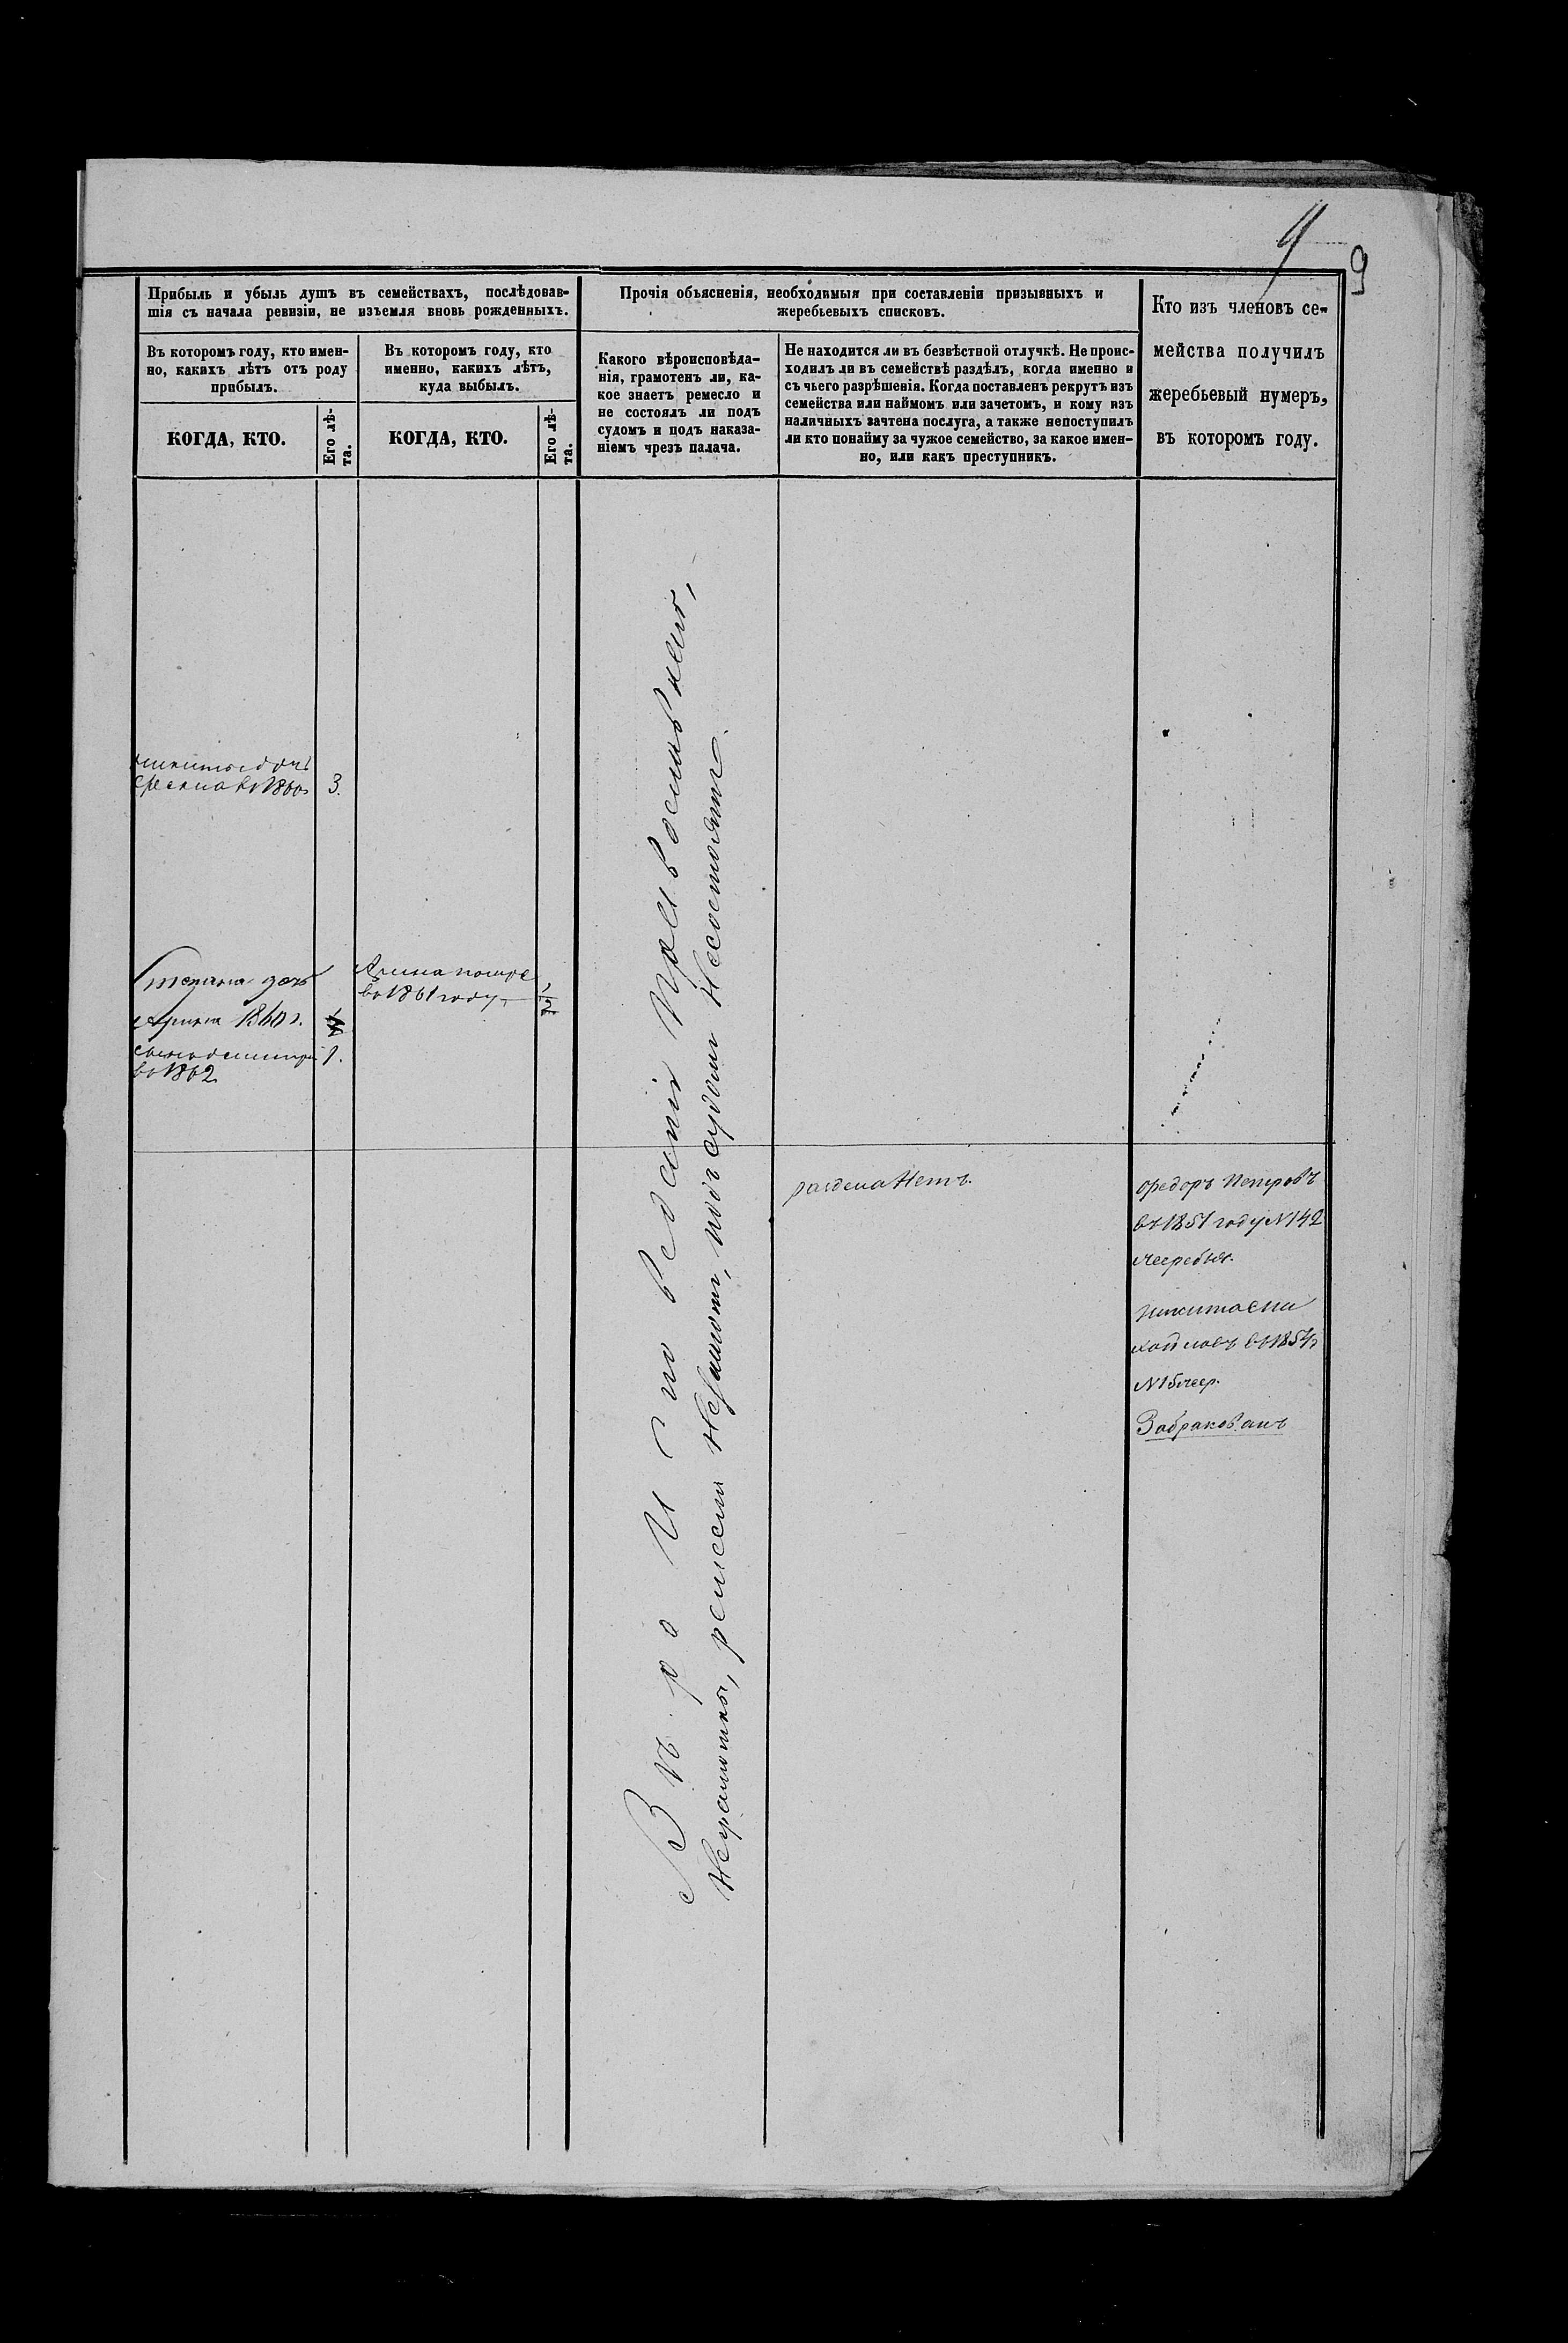 9
9
Прибыль и убыль душъ въ семействахъ, послѣдовав-
шія съ начала ревизіи, не изъемля вновь рожденныхъ.
Въ которомъ году, кто имен-
но, какихъ лѣтъ отъ роду
прибылъ.
КОГДА, КТО.
Его лѣ-
та.
Въ которомъ году, кто
именно, какихъ лѣтъ,
куда выбылъ.
КОГДА, КТО.
Его лѣ-
та.
Прочія объясненія, необходимыя при составленіи призывныхъ и
жеребьевыхъ списковъ.
Какого вѣроисповѣда-
нія, грамотенъ ли, ка-
кое знаетъ ремесло и
не состоялъ ли подъ
судомъ и подъ наказа-
ніемъ чрезъ палача.
Не находится ли въ безвѣстной отлучкѣ. Не проис-
ходилъ ли въ семействѣ раздѣлъ, когда именно и
съ чьего разрѣшенія. Когда поставленъ рекрутъ изъ
семейства или наймомъ или зачетомъ, и кому изъ
наличныхъ зачтена послуга, а также непоступилъ
ли кто понайму за чужое семейство, за какое имен-
но, или какъ преступникъ.
Кто изъ членовъ се-
мейства получилъ
жеребьевый нумеръ,
въ которомъ году.
въ 1860 3.
Степана дочь
Арина 1860 г.
1.
въ 1862
Арина
въ 1861 году 1/2
Вѣро Исповеданія Православнаго,
Неграмотны, ремесла Незнают, подъ судом Несостоятъ.
раздела Нетъ.
Федоръ Петровъ
въ 1851 году N 142
жеребья.
Никита
въ 1854 г
N 15 жер.
Забракованъ